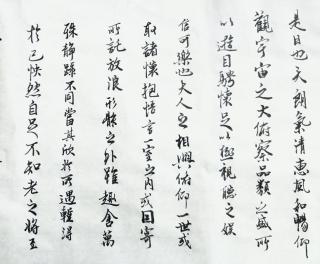 是日也天朗氣清惠風和暢仰
觀宇宙之大俯察品類之盛所
以遊目騁懷足以極視聽之娛
信可樂也夫人之相與俯仰一世或
取諸懷抱悟言一室之內或因寄
所託放浪形骸之外雖趣舍萬
殊靜躁不同當其欣於所遇暫得
於己怏然自足不知老之將至